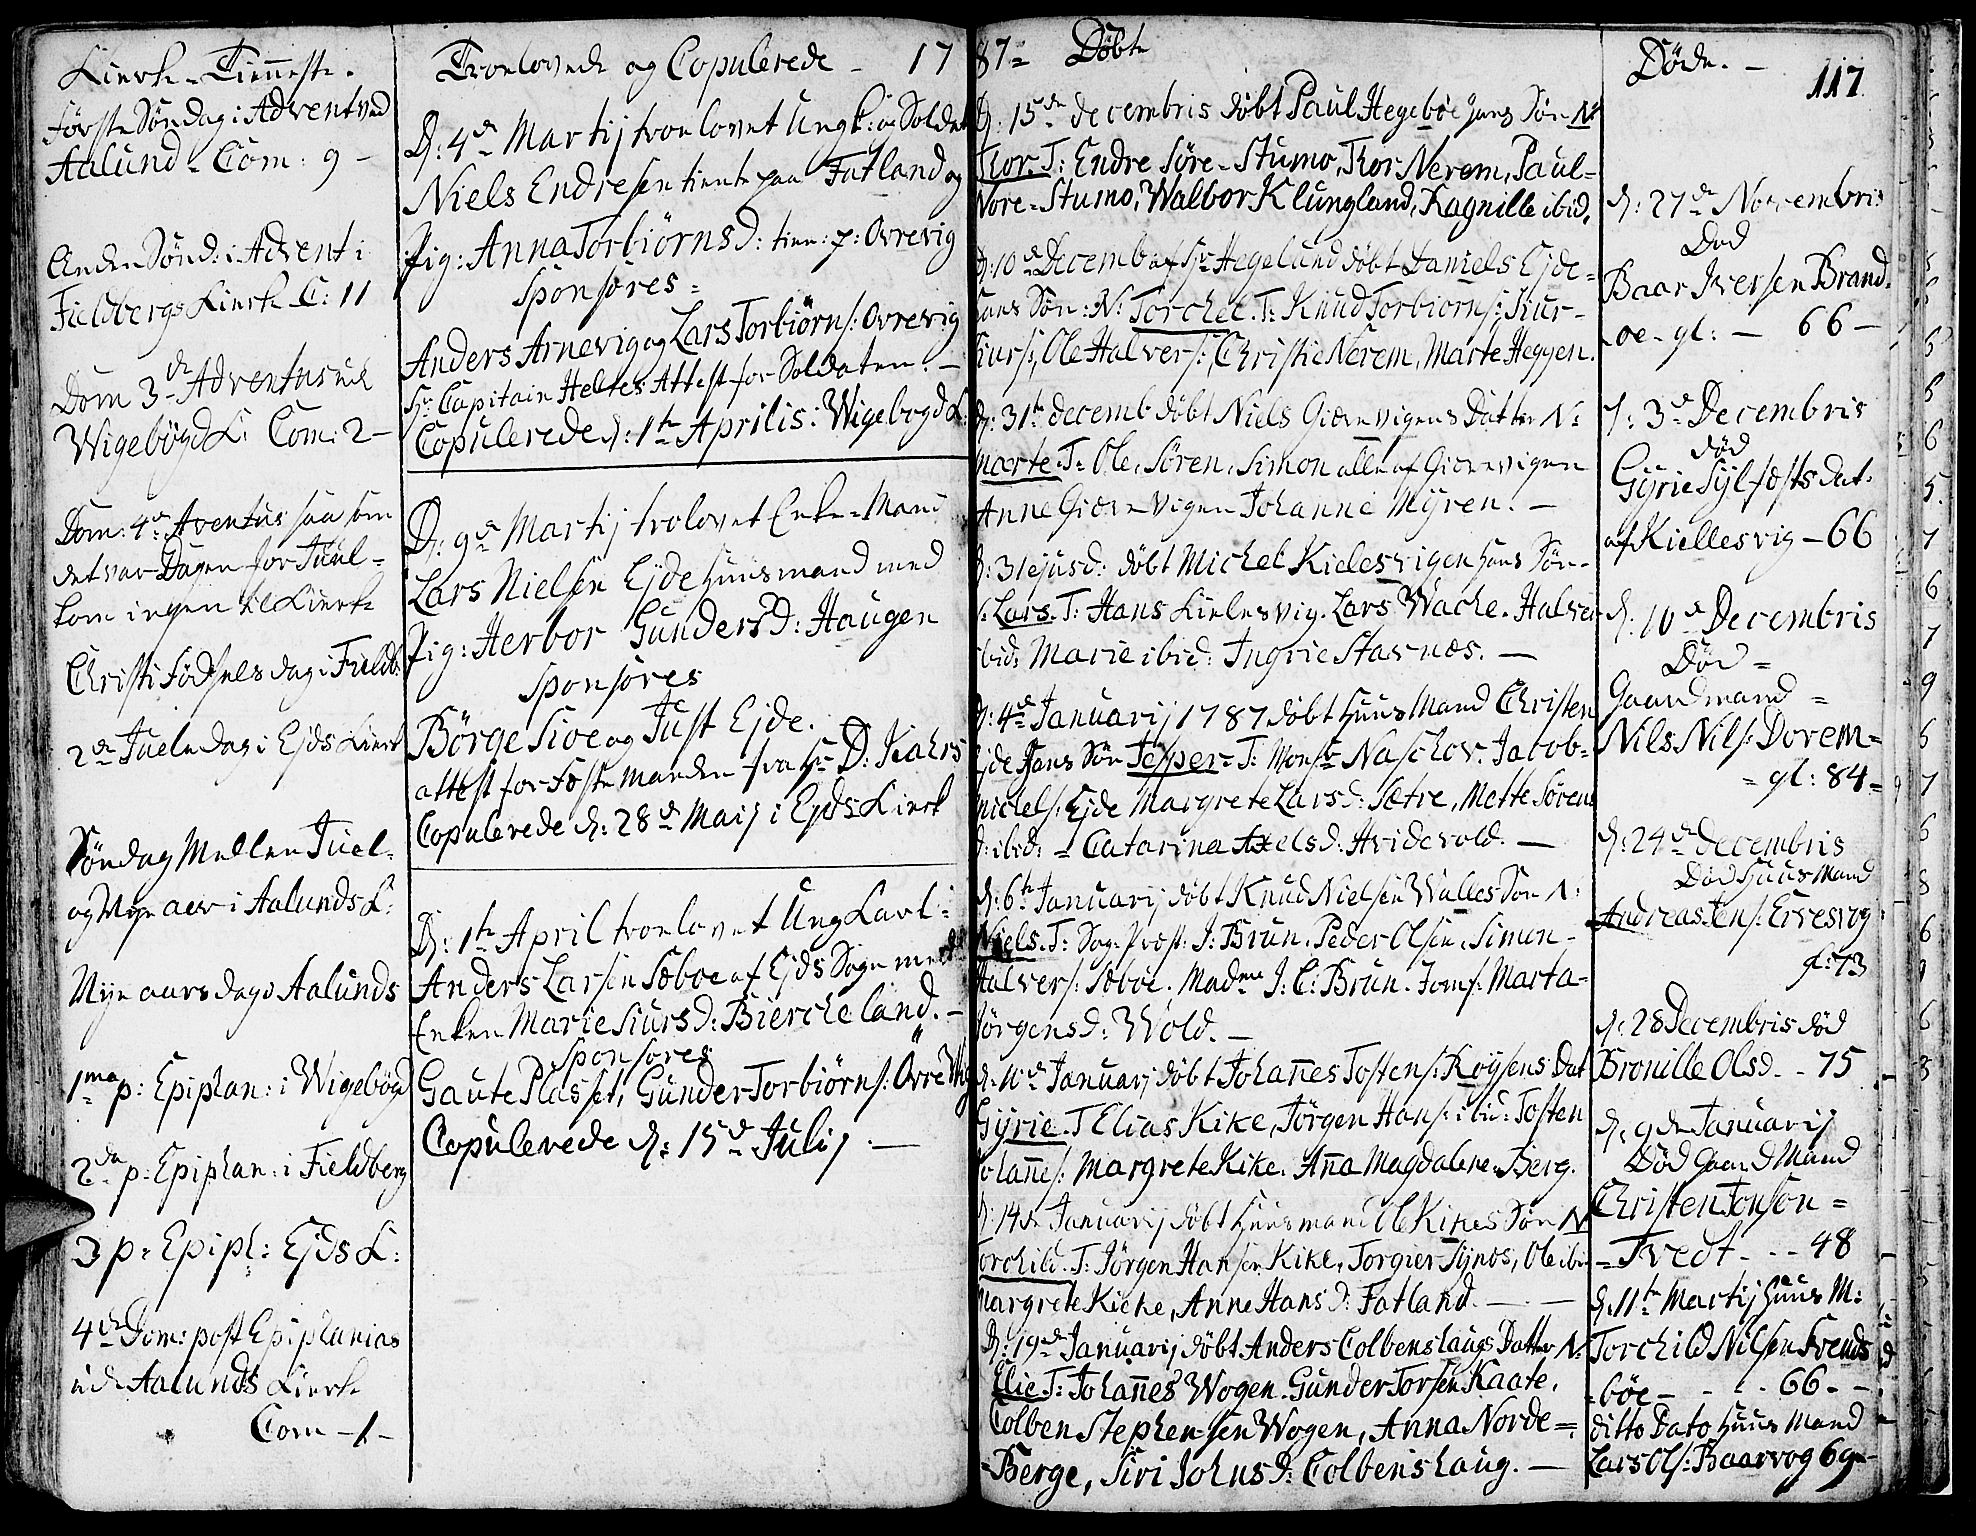 Kierke-Tienneste.
Første Søndag i Advent ved
Aalund - Com: 9 -
Anden Sønd: i Advent i
Fieldbergs Kierke C: 11
Dom 3de Adventus ved
Wigebøygd K: Com: 2 -
Dom: 4de Aventus saa som
det var Dagen for Juul-
kom ingen til Kierke
Christi Fødselsdag i Fieldb:
2den Jueledag i Ejds Kierke
Søndag Mellen Juel-
og Nye aar i Aalunds K:
Nye aars dag i Aalunds
1ma p: Epiphan: i Wigebøygd
2da p: Epiphan: i Fieldberg
3 p: Epiph: Ejds K:
4de Dom: post Epiphanias
ved Aalunds Kierke
Com - 1 -
Troelovede og Copulerede - 17
D: 4de Martij troelovet Ungk: og Soldat
Niels Endresen tient paa Fatland og
Pig: Anna Torbiørnsd: tien: p: Ovrevig
Sponsores =
Anders Arnevig og Lars Torbiørns: Ovrevig
Hr Capitain Heltes Attest for Soldaten. -
Copulerede d: 1te Aprilis: Wigebøgd K:
D: 9de Martij trolovet Enke-Mand
Lars Nielsen Ejde huusmand med
Pig: Herbor Gundersd: Haugen
Sponsores
Børge Sioe og Just Ejde.
attest for Feste manden fra Hr D: Kahrs
Copulerede d: 28de Maij i Ejds Kierk
D: 1te April troelovet Ung Karl:
Anders Larsen Sæboe af Ejds Sogn med
Enken Marie Siursd: Biercheland. -
Sponsores
Gaute Plasset, Gunder Torbiørns: Øvre Wig
Copulerede d: 15de Julij. -
87= Døbte
D: 15de decembris døbt Paul Hegebøe hans Søn N:
Thor. T: Endre Søre-Stumo, Thor Nerem, Paul-
Nore-Stumo, Walbor Klungland, Ragnille ibid.
D: 10de Decemb af Hr Hegelund døbt Daniels Ejde=
hans Søn: N: Torchel. T: Knud Torbiørns: Kur-
Kurs:, Ole Halvers:, Christie Nerem, Marte Heggen.
D: 31te decemb døbt Niels Giærvigens Datter N:
Marte. T: Ole, Søren, Simon alle af Giærvigen
Anne Giærvigen Johanne Myren. -
D: 31 ejusd: døbt Michel Kielesvigen hans Søn-
N. Lars. T: Hans Kielesvig. Lars Wache. Halver
ibid: Marie ibid: Ingrie Stavnæs. -
D: 4de Januarij 1787 døbt huus Mand Christen
Ejde hans Søn Jesper- T: Monsr Naschov. Jacob-
Michels: Ejde Margrete Larsd: Sætre, Mette Sørens
d: ibid: = Catarina Axelsd: Hvidevold. -
D: 6te Januarij døbt Knud Nielsen Walles Søn N:
Niels. T: Sogne Præst: J: Brun. Peder Olsen. Simon-
Halvers: Sæboe. Madme J: C: Brun. Jomf: Marta-
Jørgensd: Wold. -
D: 10de Januarij døbt Johannes Tostens: Røysens Dat
Gyrie. T Elias Kike, Jørgen Hans: ibid: Tosten
Johannes: Margrete Kike. Anna Magdalene Berg.
D: 14de Januarij døbt Huusmand Ole Kikes Søn N
Torchild. T: Jørgen Hansen Kike, Torgier Synes, Ole ibid
Margrete Kicke, Anne Hansd: Fatland. -
D: 19de Januarij døbt Anders Colbenshaugs Datter N:
Elie T: Johannes Wogen. Gunder Torsen Kaate,
Colben Stephensen Wogen, Anna Norde=
=Berge, Siri Johnsd: Colbenshaug. -
Døde. -
117
d: 27de Novembris
Død
Baar Iversen Brand-
-oe - gl: - 66 -
d: 3de Decembris
død
Gyrie Sylfæsts dat:
af Kiellesvig - 66
d: 10de Decembris
Død =
Gaardmand =
Nils Nils: Dorem=
= gl: 84 =
d: 24de decembris
Død Huus Mand
Andreas Jens: Ervesvog
gl: 73
d: 28 Decembris død
Bronille Olsd. - 75
d: 9de Januarij
Død Gaard Mand
Christen Jonson =
= Tvedt - - - 48
d: 11te Martij Huus M:
Torchild Nilsen Svends
=bøe - - - 66 - -
ditto Dato Huus Mand
Lars Ols: Baarvog 69 -